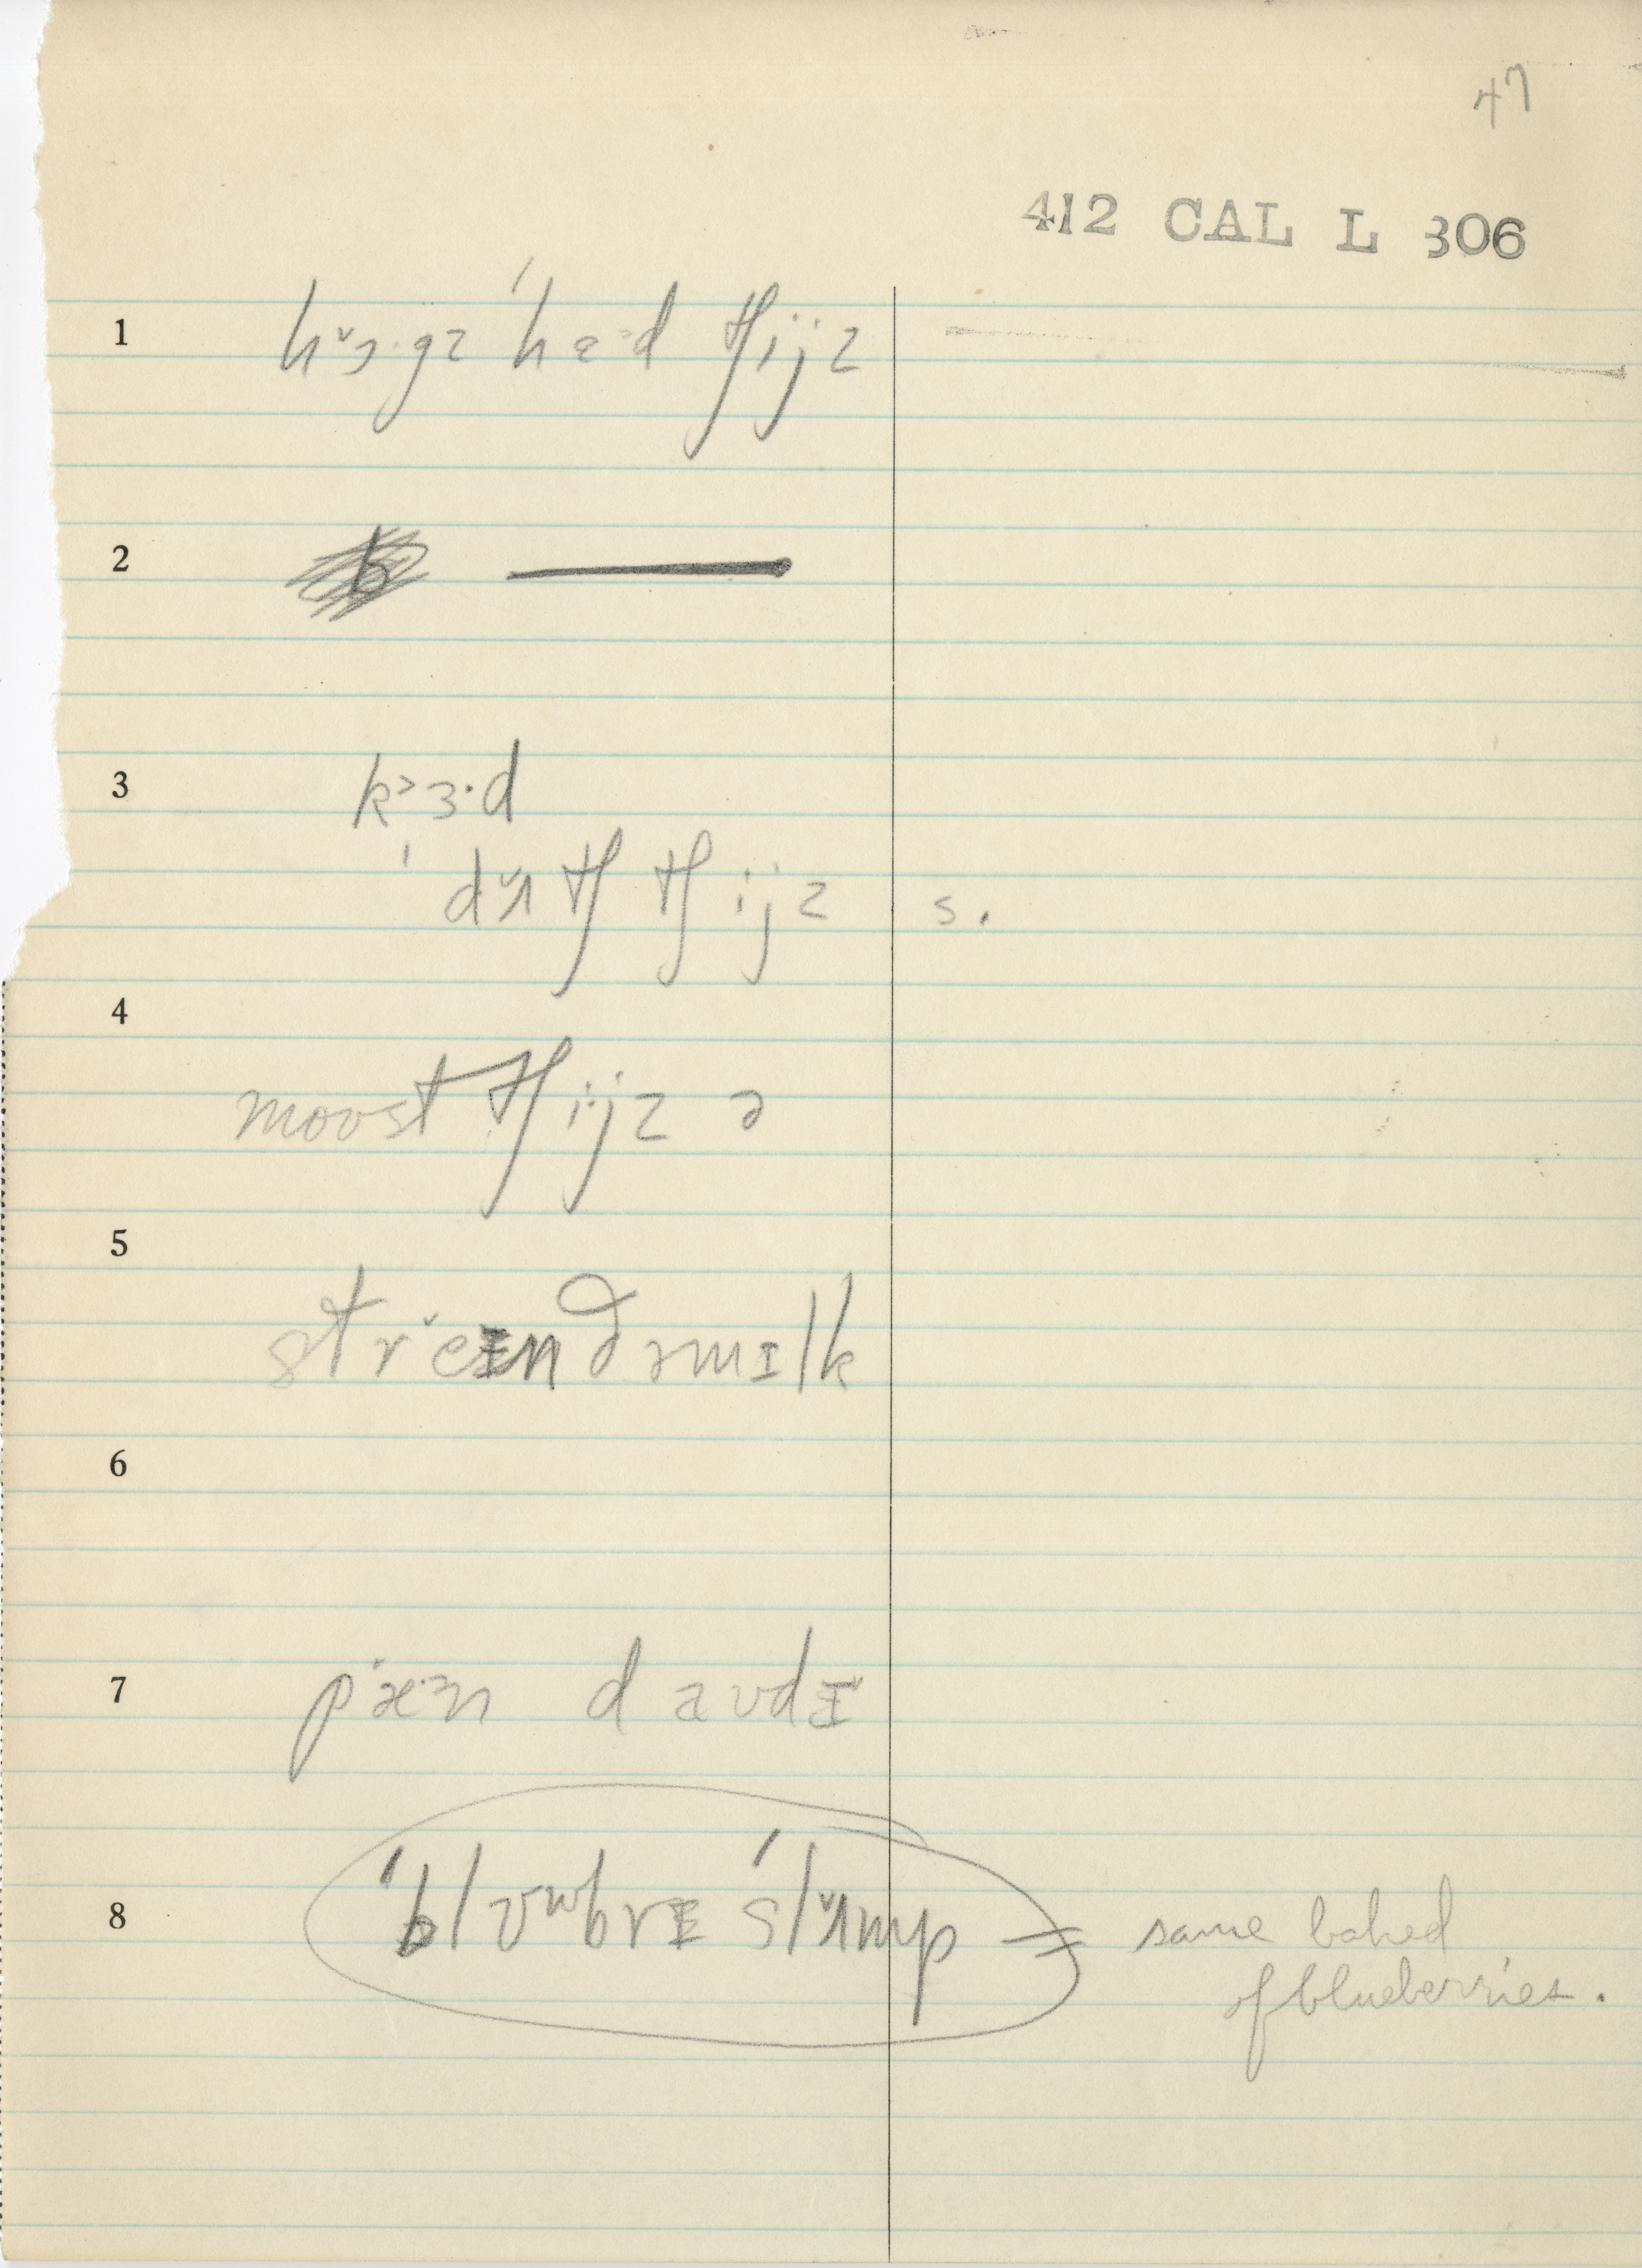 47
412 CAL L 306
1 hɔ˞·gz ˈhɛ·ᵊd tʃijz
2 —
3 kᵓɜ·d
ˈdʌtʃ tʃijz s.
4
moʊst tʃijz ə
5
streɪnd əmɪlk
6
7 pæ·ᵊn daʊdɪ
8 ˈblʊʷbrɪ ˈslʌmp = same baked
of blueberries.